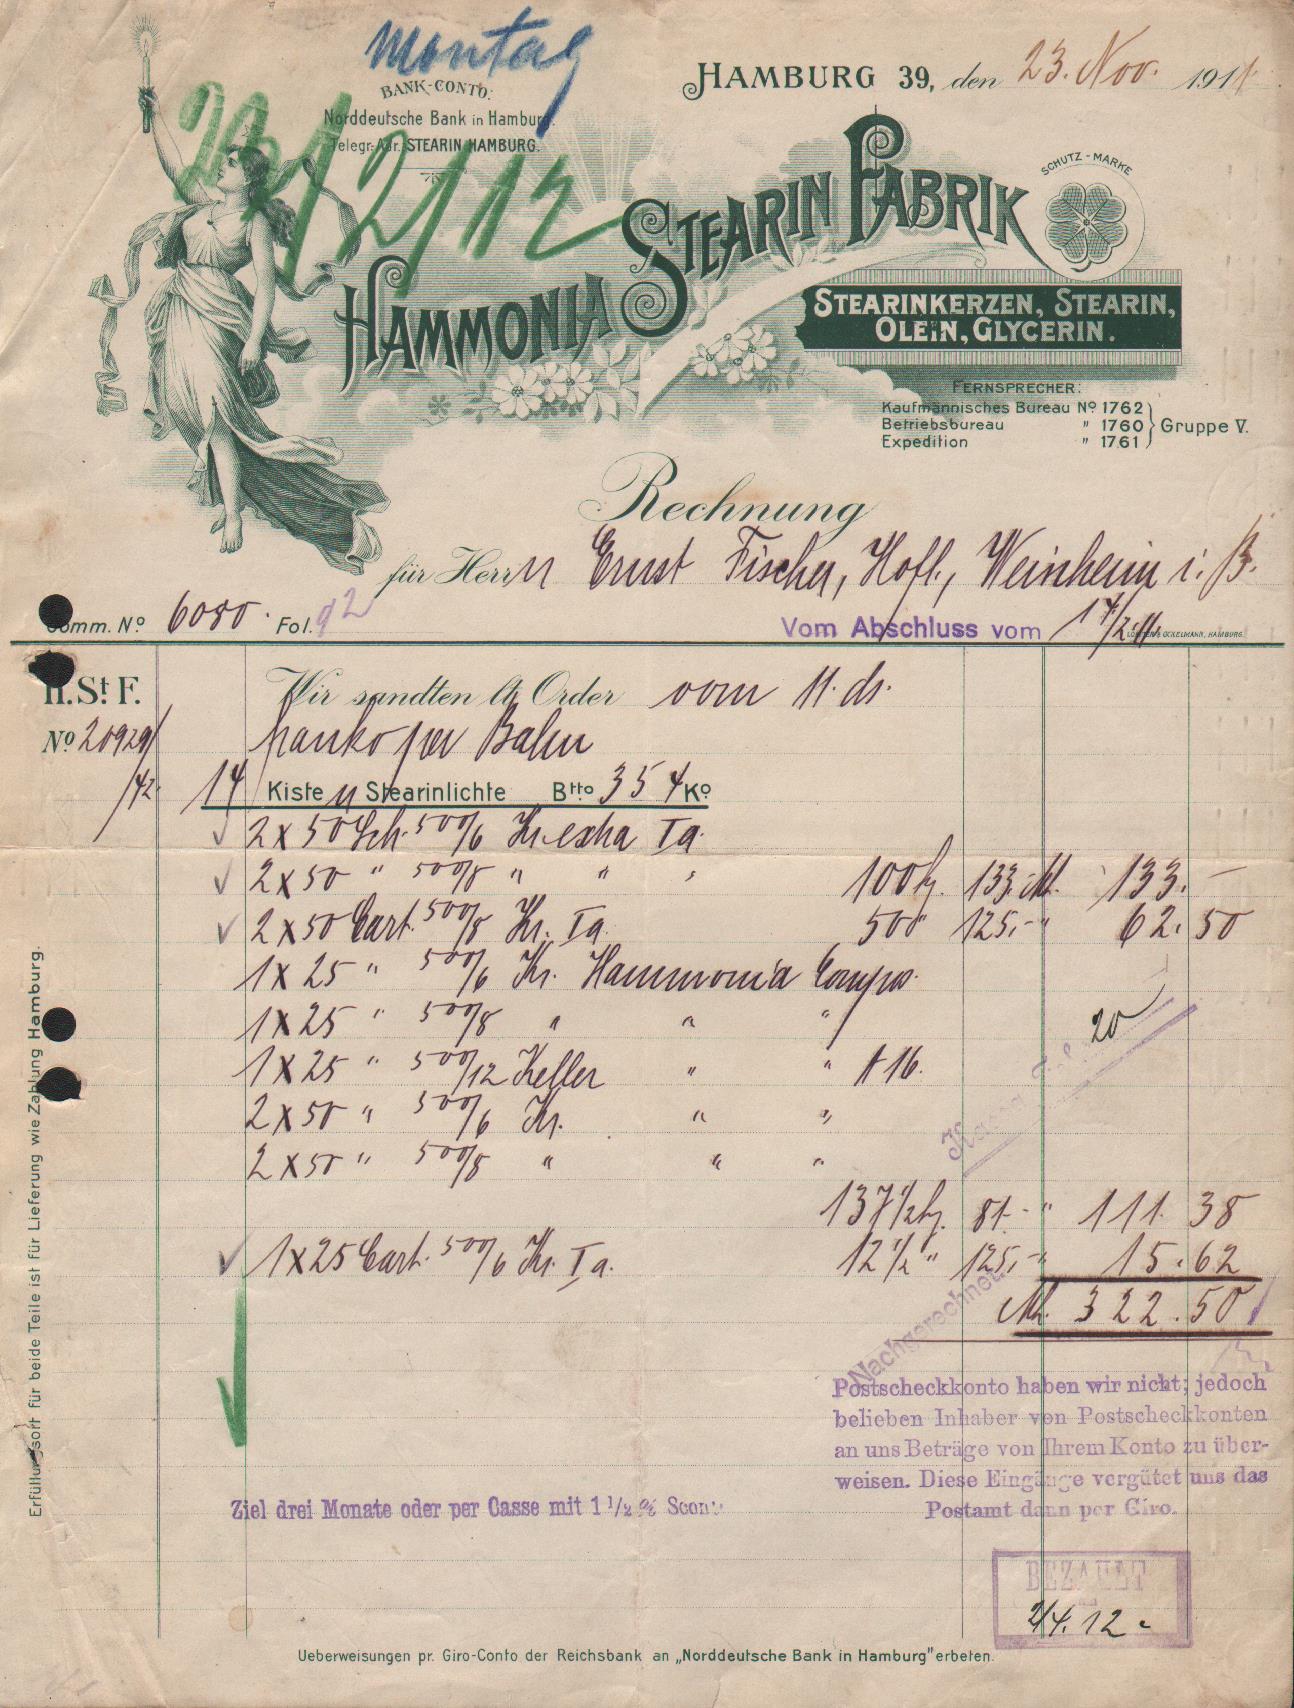 Montag
BANK-CONTO:
Norddeutsche Bank in Hamburg.
Telegr.-Adr. STEARIN HAMBURG.
HAMBURG 39, den 23. Nov. 1911.
SCHUTZ-MARKE
HAMMONIA STEARIN FABRIK
STEARINKERZEN, STEARIN,
OLEïN, GLYCERIN.
FERNSPRECHER:
Kaufmännisches Bureau No 1762
Betriebsbureau " 1760
Expedition " 1761
Gruppe V.
Rechnung
für Herrn Ernst Fischer, Hofl., Weinheim i. B.
Comm. No 6080. Fol. 92
Vom Abschluss vom 17/2. 11.
H. St F.
No 20929/
/42
Wir sandten lt Order vom 11. ds.
franko per Bahn
14 Kisten Stearinlichte Btto 354 Ko
2 x 50 Sch. 500/6 Kr. extra Ia.
2 x 50 " 500/8 " " " 100 kg. 133.- M. 133. -
2 x 50 Cart. 500/8 Kr. Ia. 50 " 125.- " 62. 50
1 x 25 " 500/6 Kr. Hammonia Compos.
1 x 25 " 500/8 " " "
20
1 x 25 " 500/12 Keller " " A 16.
2 x 50 " 500/6 Kr. " "
2 x 50 " 500/8 " " "
137 1/2 kg. 81.- " 111. 38
1 x 25 Cart. 500/6 Kr. Ia. 12 1/2 " 125.- " 15. 62
Mk. 322. 50
Nachgerechnet
Postscheckkonto haben wir nicht; jedoch
belieben Inhaber von Postscheckkonten
an uns Beträge von Ihrem Konto zu über-
weisen. Diese Eingänge vergütet uns das
Postamt dann per Giro.
Ziel drei Monate oder per Casse mit 1 1/2 % Sconto
BEZAHLT
2/4. 12.
Erfüllungsort für beide Teile ist für Lieferung wie Zahlung Hamburg.
Ueberweisungen pr. Giro-Conto der Reichsbank an „Norddeutsche Bank in Hamburg" erbeten.